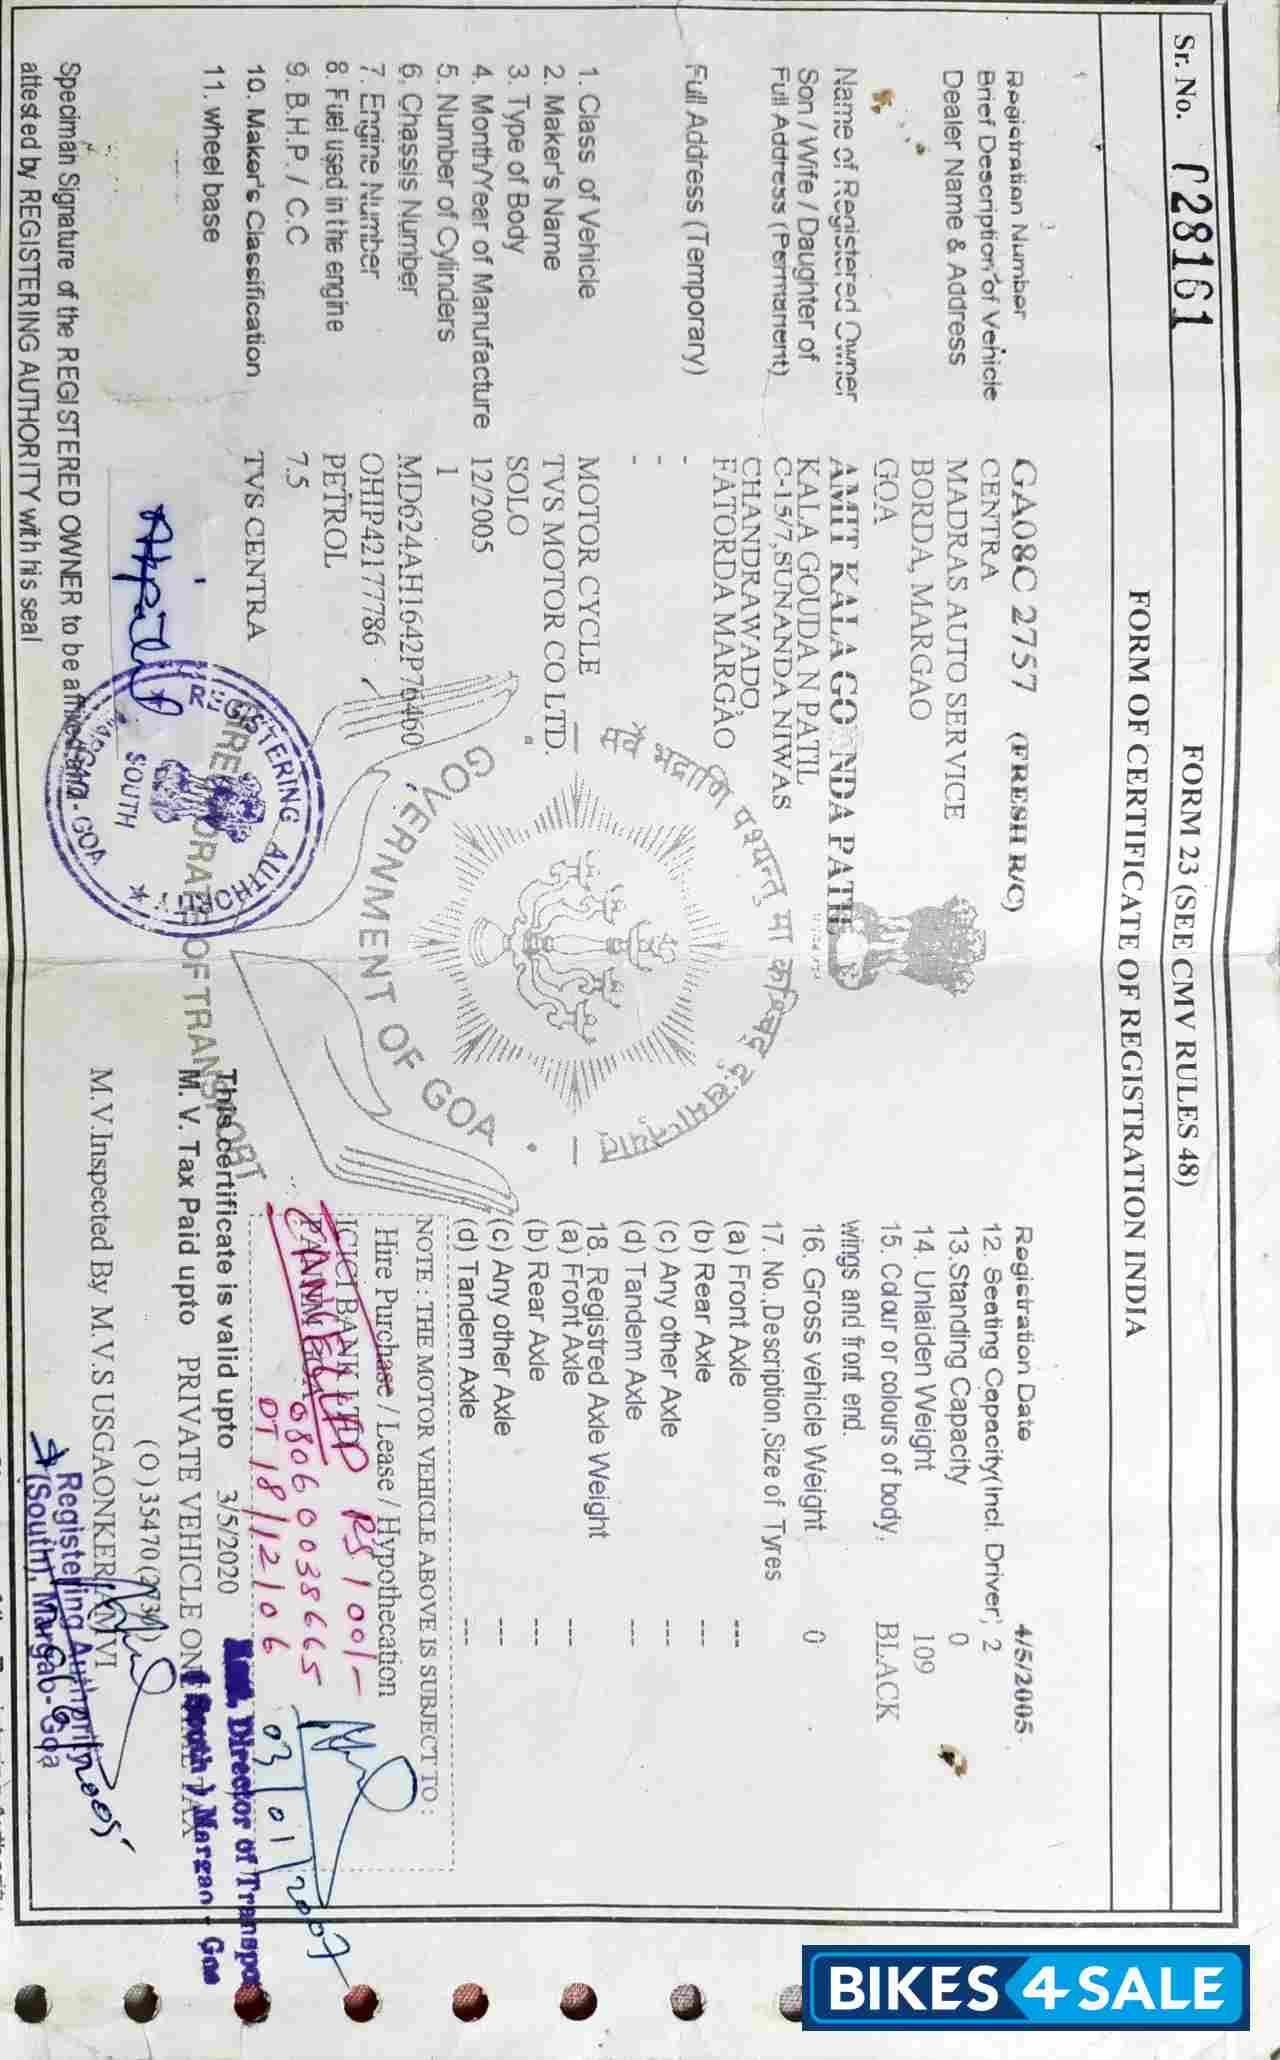 Sr. No. C28161
FORM 23 (SEE CMV RULES 48)
FORM OF CERTIFICATE OF REGISTRATION INDIA
Registration Number GA08C 2757 (FRESH R/C)
Brief Description of Vehicle CENTRA
Dealer Name & Address MADRAS AUTO SERVICE
BORDA, MARGAO
GOA
Name of Registered Owner AMIT KALA GO NDA PATIL
Son / Wife / Daughter of KALA GOUDA N PATIL
Full Address (Permanent) C-15/7,SUNANDA NIWAS
CHANDRAWADO,
FATORDA MARGAO
Full Address (Temporary) -
-
-
1. Class of Vehicle MOTOR CYCLE
2. Maker's Name TVS MOTOR CO LTD.
3. Type of Body SOLO
4. Month/Year of Manufacture 12/2005
5. Number of Cylinders 1
6. Chassis Number MD624AH1642P76460
7. Engine Number OHIP42177786
8. Fuel used in the engine PETROL
9. B.H.P. / C.C 7.5
10. Maker's Classification TVS CENTRA
11. wheel base
Speciman Signature of the REGISTERED OWNER to be affixed and
attested by REGISTERING AUTHORITY with his seal
Registration Date 4/5/2005
12. Seating Capacity(Incl. Driver) 2
13.Standing Capacity 0
14. Unlaiden Weight 109
15. Colour or colours of body, BLACK
wings and front end.
16. Gross vehicle Weight 0
17. No.,Description,Size of Tyres
(a) Front Axle ---
(b) Rear Axle ---
(c) Any other Axle ---
(d) Tandem Axle ---
18. Registred Axle Weight
(a) Front Axle ---
(b) Rear Axle ---
(c) Any other Axle ---
(d) Tandem Axle ---
NOTE : THE MOTOR VEHICLE ABOVE IS SUBJECT TO :
Hire Purchase / Lease / Hypothecation
ICICI BANK LTD
CANCELLED RS 100/-
08060038665
DT 18/12/06
03/01/2007
This certificate is valid upto 3/5/2020
M. V. Tax Paid upto PRIVATE VEHICLE ONE TIME TAX
M.V.Inspected By M.V.S USGAONKER AMVI
Director of Transport
(South) Margao - Goa
Registering Authority
(South), Margao-Goa
REGISTERING AUTHORITY
SOUTH
GOA
सर्वे भद्राणि पश्यन्तु मा कश्चिद् दुःखमाप्नुयात्
GOVERNMENT OF GOA
DIRECTORATE OF TRANSPORT
BIKES4SALE